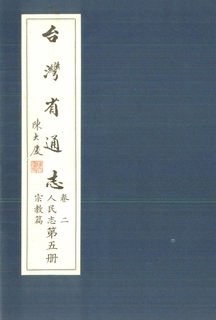 台灣省通志
陳大慶
卷二
人民志
宗教篇
第五册